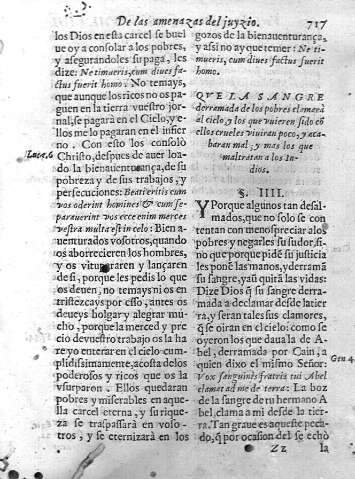 De las amenazas del juyzio. 717
los Dios en esta carcel se buel
ue oy a consolar a los pobres,
y asegurandoles su paga, les
dize: Ne timueris, cum diues fa-
ctus fuerit homo. No temays,
que aunque los ricos no os pa-
guen en la tierra vuestro jor-
nal, se pagarà en el Cielo, y e-
llos me lo pagaran en el infier
no. Con esto los consolò
Christo, despues de auer loa-
do la bienauenturança, de su
pobreza y de sus trabajos, y
persecuciones: Beati eritis cum
vos oderint homines & cum se-
parauerint vos ecce enim merces
vestra multa est in celo: Bien a-
uenturados vosotros, quando
os aborrecieren los hombres,
y os vituperaren y lançaren
de si, porque les pedis lo que
os deuen, no temays ni os en
tristezcays por esso, antes os
deueys holgar y alegrar mu-
cho, porque la merced y pre
cio de vuestro trabajo os la ha
re yo enterar en el cielo cum-
plidissimamente, a costa de los
poderosos y ricos que os la
vsurparon. Ellos quedaran
pobres y miserables en aque-
lla carcel eterna, y su rique-
za se traspassarà en voso-
tros, y se eternizarà en los
Luc. 6
gozos de la bienauenturança,
y assi no ay que temer: Ne ti-
mueris, cum diues factus fuerit
homo.
QVE LA SANGRE
derramada de los pobres clamarà
al cielo, y los que vuieren sido cõ
ellos crueles viuiran poco, y aca-
baran mal, y mas los que
maltratan a los In-
dios.
§. IIII.
Y Porque algunos tan desal-
mados, que no solo se con
tentan con menospreciar a los
pobres y negarles su sudor, si-
no que porque pidẽ su justicia
les ponẽ las manos, y derramã
su sangre, y aũ quitã las vidas:
Dize Dios q̃ su sangre derra-
mada a declamar desde la tier
ra, y seran tales sus clamores,
q̃ se oiran en el cielo: como se
oyeron los que daua la de A-
bel, derramada por Cain, a
quien dixo el mismo Señor:
Vox sanguinis fratris tui Abel
clamat ad me de terra: La boz
de la sangre de tu hermano A
bel, clama a mi desde la tier-
ra. Tan graue es aqueste peca-
do, q̃ por ocasion del se echò
Gen 4.
Zz la